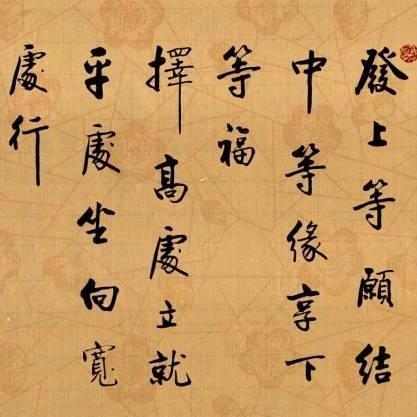 發上等願結
中等緣享下
等福
擇高處立就
平處坐向寬
處行